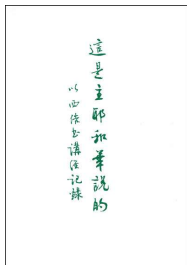 這是主耶和華說的
以西结書講經記錄